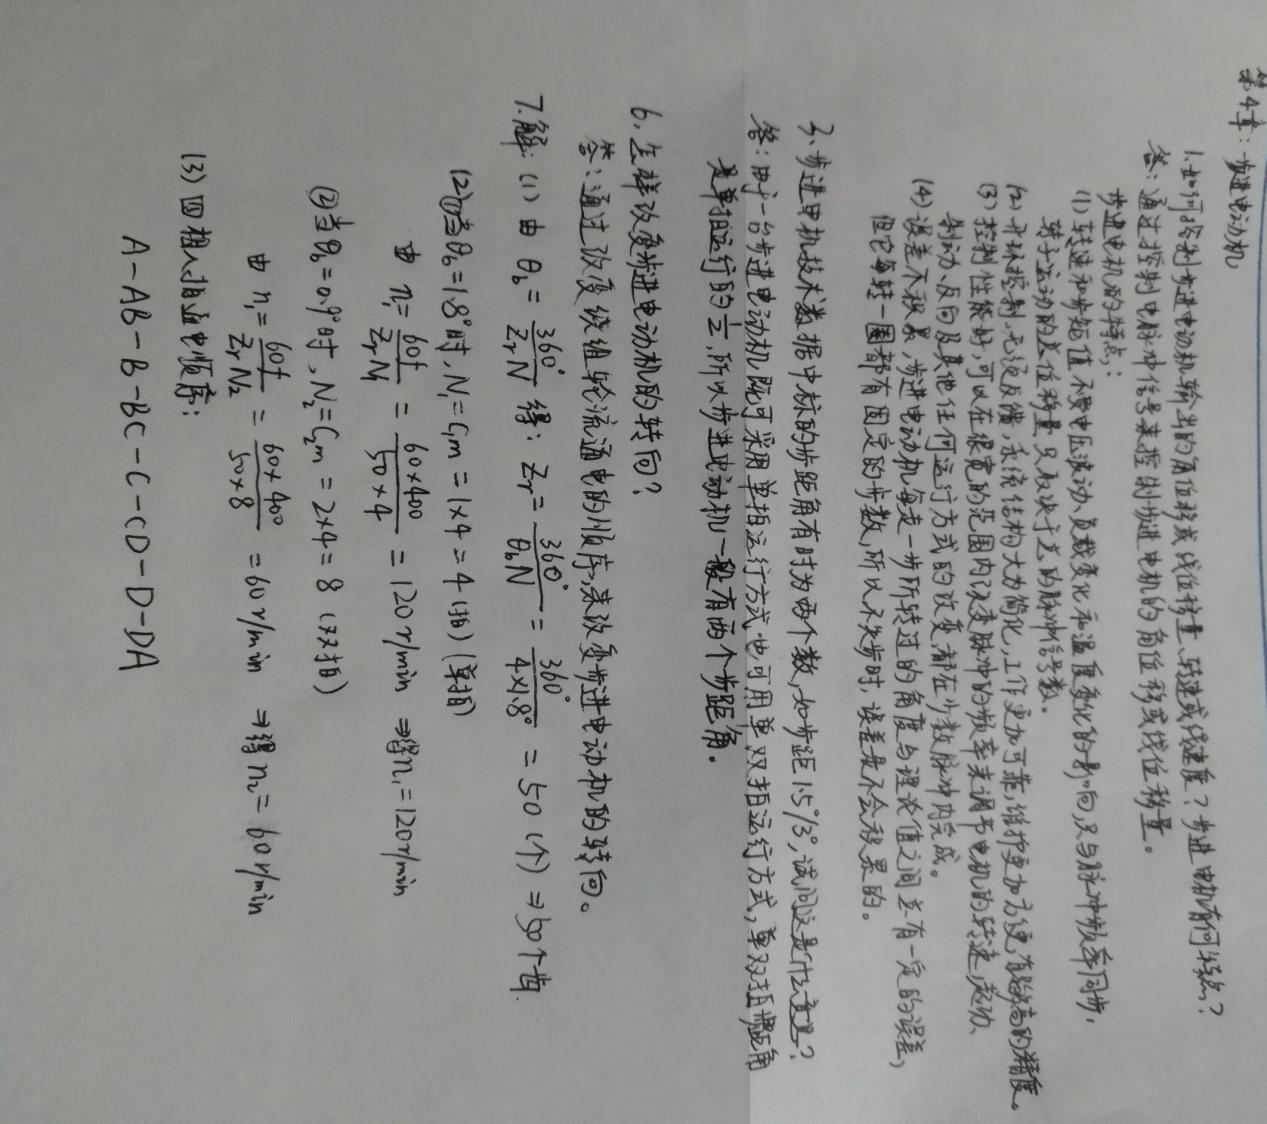 第4章：步进电动机
1.如何控制步进电动机输出的角位移或线位移量、转速或线速度？步进电机有何特点？
答：通过控制电脉冲信号来控制步进电机的角位移或线位移量。
步进电机的特点：
(1) 转速和步距值不受电压波动、负载变化和温度变化的影响，只与脉冲频率同步，
转子运动的总位移量只取决于总的脉冲信号数。
(2) 开环控制，无须反馈，系统结构大为简化，工作更加可靠，维护更加方便，有较高的精度。
(3) 控制性能好，可以在很宽的范围内改变脉冲的频率来调节电机的转速，起动、
制动、反向及其他任何运行方式的改变，都在少数脉冲内完成。
(4) 误差不积累，步进电动机每走一步所转过的角度与理论值之间总有一定的误差，
但它每转一圈都有固定的步数，所以不失步时，误差是不会积累的。
3.步进电机技术数据中标的步距角有时为两个数，如步距1.5°/3°，试问这是什么意思？
答：由于一台步进电动机既可采用单拍运行方式也可用单双拍运行方式，单双拍步距角
是单拍运行的1/2，所以步进电动机一般有两个步距角。
6.怎样改变步进电动机的转向？
答：通过改变绕组轮流通电的顺序，来改变步进电动机的转向。
7.解：(1) 由 θb = 360°/ZrN 得：Zr = 360°/θbN = 360°/4×1.8° = 50 (个) ⇒ 50个齿.
(2)①当θb = 1.8°时，N1=C1m = 1×4 = 4 (拍) (单拍)
由 n1 = 60f/ZrN1 = 60×400/50×4 = 120 r/min ⇒得n1=120r/min
②当θb = 0.9°时，N2=C2m = 2×4 = 8 (双拍)
由 n1 = 60f/ZrN2 = 60×400/50×8 = 60 r/min ⇒得 n2 = 60 r/min
(3) 四相八拍通电顺序：
A-AB-B-BC-C-CD-D-DA